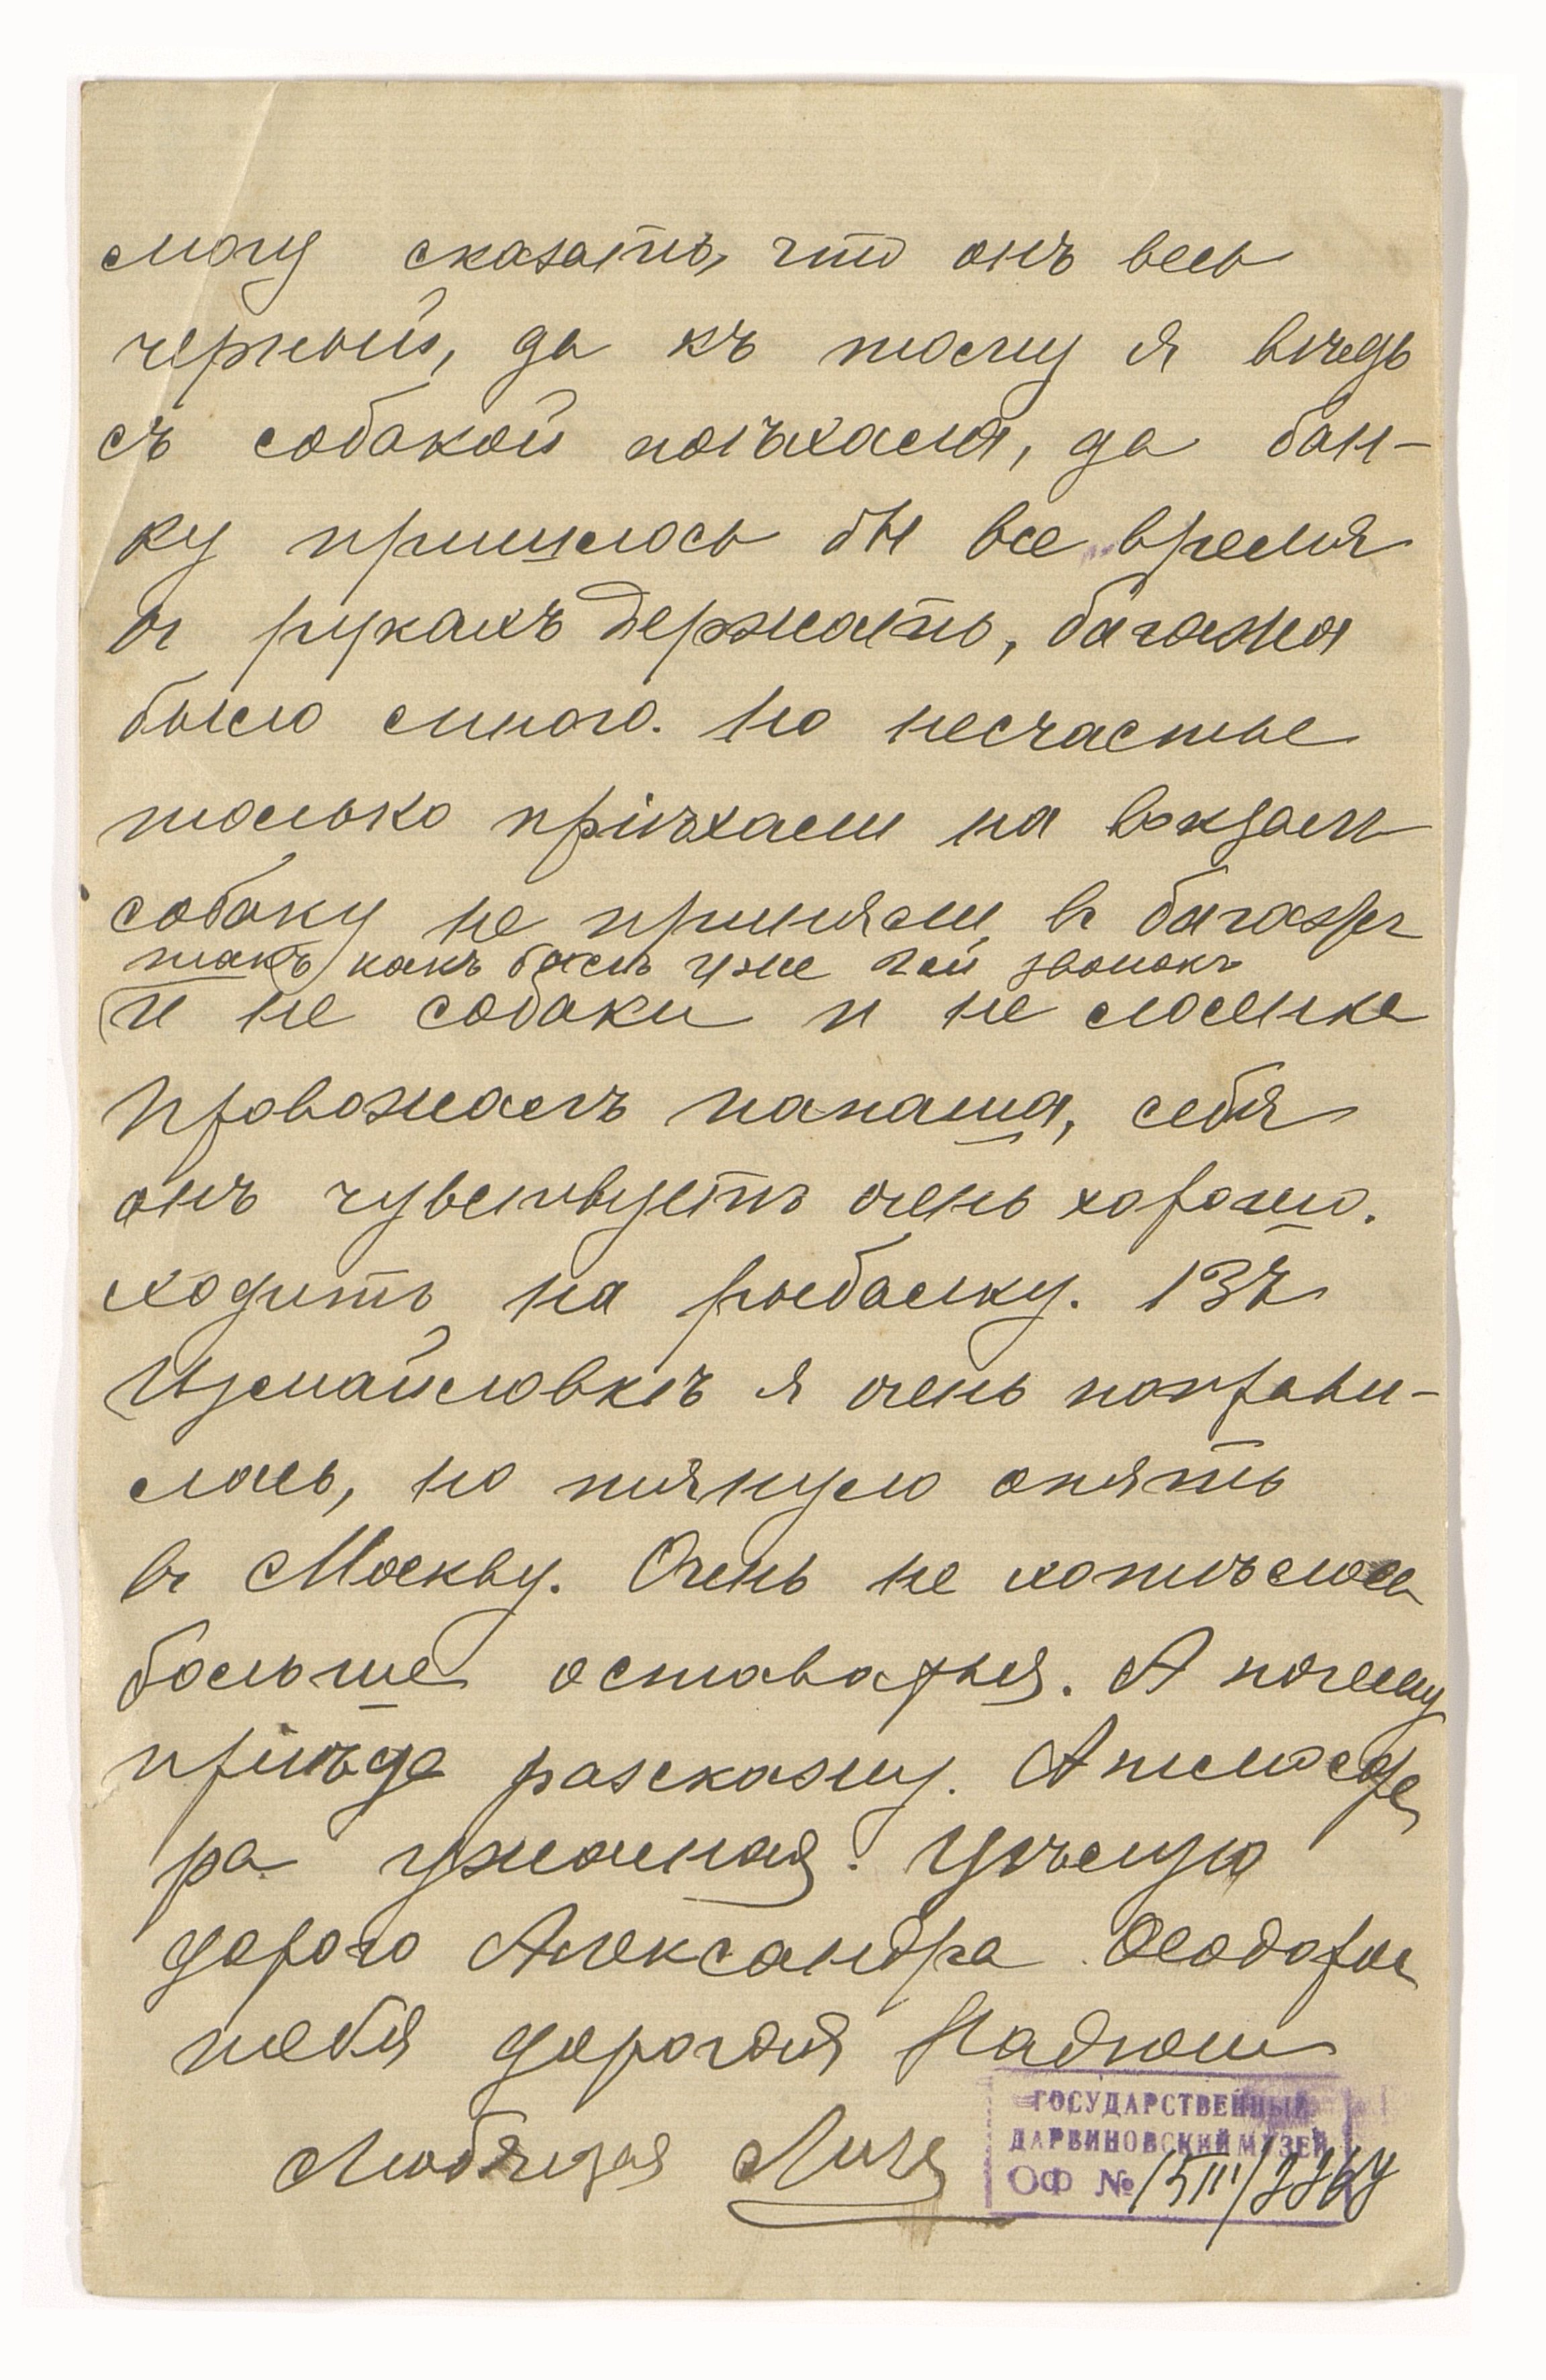 могу сказать, что онъ весь
черный, да къ тому я вѣдь
съ собакой поѣхала, да бан-
ку пришлось бы все время
въ рукахъ держать, багажа
было много. но несчастье
только пріѣхали на вокзалъ
собаку не приняли въ багажъ
такъ какъ былъ уже 2ой звонокъ
и не собаки и не
Провожалъ папаша, себя
онъ чувствуетъ очень хорошо.
ходитъ на рыбалку. Въ
Измайловкѣ я очень поправи-
лась, но тянуло опять
въ Москву. Очень не хотѣлось
больше оставаться. А почему
пріѣда разскажу. Атмосфе
ра ужасная. Цѣлую
дорого Александра Ѳеодоров
тебя дорогая Надюш
Любящая Лиза
ГОСУДАРСТВЕННЫЙ
ДАРВИНОВСКИЙ МУЗЕЙ
ОФ №